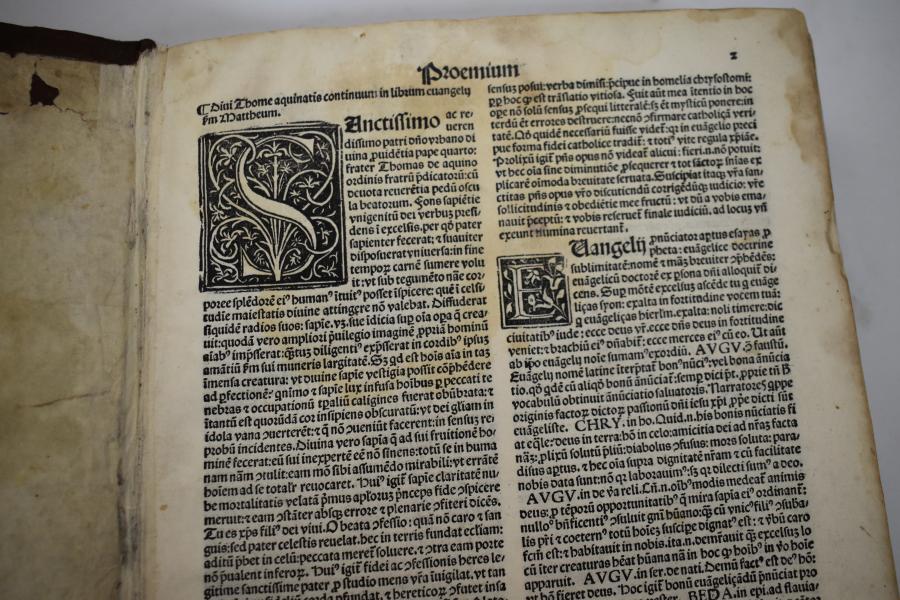 Proemium
2
¶ Diui Thome aquinatis continuum in librum euangelij
Mattheum.
SAnctissimo ac re
ueren
dissimo patri dño vrbano di
uina ꝓuidētia pape quarto:
frater Thomas de aquino
ordinis fratrū p̄dicatorū: cū
deuota reuerētia pedū oscu
la beatorum. Fons sapiētie
vnigenitū dei verbū presi
dens ī excelsis. per qd pater
sapienter fecerat: ⁊ suauiter
disposuerat vniuersa: in fine
tempoꝝ carnē sumere volu
it: vt sub tegumēto nāe cor
poree splēdorē eiꝰ humanꝰ ītuitꝰ posset īspicere: quē ī celsi
tudie maiestatis diuine attingere nō valebat. Diffuderat
siquidē radios suos: sapīe. vꝫ. sue īdicia suꝑ oīa oꝑa q̄ crea-
uit: quodā vero ampliori p̄uilegio imaginē ꝓpriā hominū
aīabꝰ imp̄sserat: diligentiꝰ exp̄sserat in cordibꝰ ipsuꝫ
amātiū sui muneris largitatē. Sꝫ qd est hoīs aīa in taꝫ
īmensa creatura: vt diuine sapīe vestigia possit cōp̄hēdere
ad ꝑfectionē: qnīmo ⁊ sapīe lux infusa hoībus ꝑ peccati te
nebras ⁊ occupationū tpaliū caligines fuerat obūbrata: ⁊
ītantū est quorūdā cor insipiens obscuratū: vt dei gloriam in
idola vana ꝯuerterēt: ⁊ q̄ nō ꝯueniūt facerent: in sensuꝫ re
probū incidentes. Diuina vero sapīa q̄ ad sui fruitionē ho-
minē fecerat: eū sui inexpertē eē nō sinens: totū se in huma
nam nām ꝯtulit: eam sibi assumēdo mirabili: vt errātē
hoīem ad se totalr reuocaret. Huiꝰ igit sapīe claritatē nu
be mortalitatis velatā p̄mus apl'oruꝫ p̄nceps fide ꝯspicere
meruit: ⁊ eam ꝯstāter absqꝫ errore ⁊ plenarie ꝯfiteri dicēs.
Tu es xp̄s filiꝰ dei viui. O beata ꝯfessio: quā nō caro ⁊ san
guis: sed pater celestis reuelat. hec in terris fundat eccl'iam:
aditū p̄bet in celū: peccata meret soluere. ⁊ ꝯtra eam porte
nō p̄ualent inferoꝝ. Huiꝰ igit fidei ac ꝯfessionis heres le-
gitime sanctissime pater: studio mens vr̄a īuigilat. vt tan
fidelium corda ꝑfundat. ⁊ hereticoꝝ
sensus posui: verba dimisi: p̄cipue in homelia chrysostomi:
ꝓp hoc ꝙ est trāslatio vitiosa. Fuit aūt mea ītentio in hoc
oꝑe nō solū sensuꝫ ꝓsequi litteralē: sꝫ et mysticū ponere: in
terdū et errores destruere: necnō ⁊firmare catholicā veri-
tatē. Qd quidē necessariū fuisse videt: qr in euāgelio preci
pue forma fidei catholice tradit: ⁊ totiꝰ vite regula xp̄iāe.
Prolixū igit p̄ns opus nō videat alicui: fieri. n. nō potuit
vt hec oīa sine diminutiōe ꝓsequerer ⁊ tot factoꝝ snīas ex
plicarē oīmoda breuitate seruata. Suscipiat itaqꝫ vr̄a san-
ctitas p̄ns opus vr̄o discutiendū corrigēdūqꝫ iudicio: vr̄e
sollicitudinis ⁊ obediētie mee fructū: vt dū a vobis ema-
nauit p̄ceptū: ⁊ vobis reseruet finale iudiciū. ad locuꝫ vn̄
exeunt flumina reuertant.
EUangelij ꝓnūciator aꝑtus esayas ꝓ
pheta: euāgelice doctrine
sublimitatē: nomē ⁊ mām breuiter ꝯp̄hēdēs:
euāgelicū doctorē ex ꝑsona dn̄i alloquit di-
cens. Suꝑ mōtē excelsuꝫ ascēde tu q̄ euāge
liças syon: exalta in fortitudine vocem tuā:
q̄ euāgelicas hierl'm. exalta: noli timere: dic
ciuitatibꝰ iude: ecce deus vr̄. ecce dn̄s deus in fortitudine
veniet: ⁊ brachiū eiꝰ dn̄abit: ecce merces eiꝰ cū eo. Ut aūt
ab ip̄o euāgelij noīe sumamꝰ exordiū. AVGV. ꝯ faustū.
Euāgelij nomē latine īterp̄tat bonꝰ nūciꝰ: vel bona ānūcia
tio. qd qdē cū aliqd bonū ānūciat: semꝑ dici pt. ꝓprie tn̄
vocabulū obtinuit ānūciatio saluatoris. Narratores qppe
originis factoꝝ dictoꝝ passionū dn̄i iesu xp̄i. ꝓpe dicti sūt
euāgeliste. CHRY. in ho. Quid. n. his bonis nūciatis fi
at eq̄le: deus in terra: hō in celo: amicitia dei ad nr̄aꝫ facta
nāꝫ: ꝓlixū solutū pliū: diabolus ꝯfusus: mors soluta: para-
disus aꝑtus. ⁊ hec oīa supra dignitatē nr̄am ⁊ cū facilitate
nobis data sunt: nō qr laborauimꝰ: sꝫ qr dilecti sumꝰ a deo.
AVGV. in de va reli. Cū. n. oībꝰ modis medeat animis
deus: ꝓ tēporū opportunitatibꝰ q̄ mira sapīa eiꝰ ordinant:
nulloꝰ bn̄ficentiꝰ ꝯsuluit gnī hūano: q̄ cū vnicꝰ filiꝰ ꝯsuba-
lis pr̄i ⁊ coetern̄ totū hoīeꝫ suscipe dignatꝰ est: ⁊ vbū caro
fcm̄ est: ⁊ habitauit in nobis. ita. n. demr̄auit q̄ excelsuꝫ lo
cū īter creaturas hēat hūana nā in hoc ꝙ hoībꝰ in vo hoīe
apparuit. AVGV. in ser. de nati. Demū factꝰ est de hō:
vt hō fieret deus. Hoc igit bonū euāgelicādū p̄nūciat pro
BEDA. in epi. ad flauia-